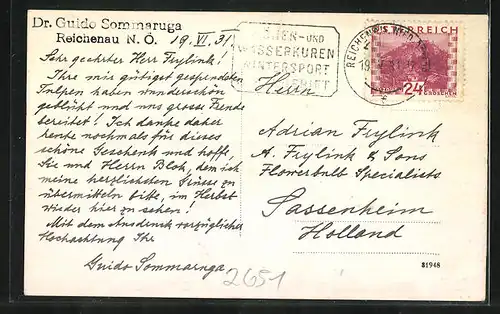 Dr. Guido Sommaruga
Reichenau N. Ö. 19. VI. 31.
Sehr geehrter Herr Frylink!
Ihre mir gütigst gespendeten
Tulpen haben wunderschön
geblüht und uns grosse Freude
bereitet! Ich danke daher
heute nochmals für dieses
schöne Geschenk und hoffe,
Sie und Herrn Blok, dem ich
meine herzlichsten Grüsse zu
übermitteln bitte, im Herbst
wieder hier zu sehen!
Mit dem Ausdruck vorzüglicher
Hochachtung Ihr
Guido Sommaruga
2651
UND
WASSERKUREN
WINTERSPORT
REICHENAU
REICH
24
GROSCHEN
Herrn
Adrian Frylink
A. Frylink & Sons
Flowerbulb Specialists
Sassenheim
Holland
81948